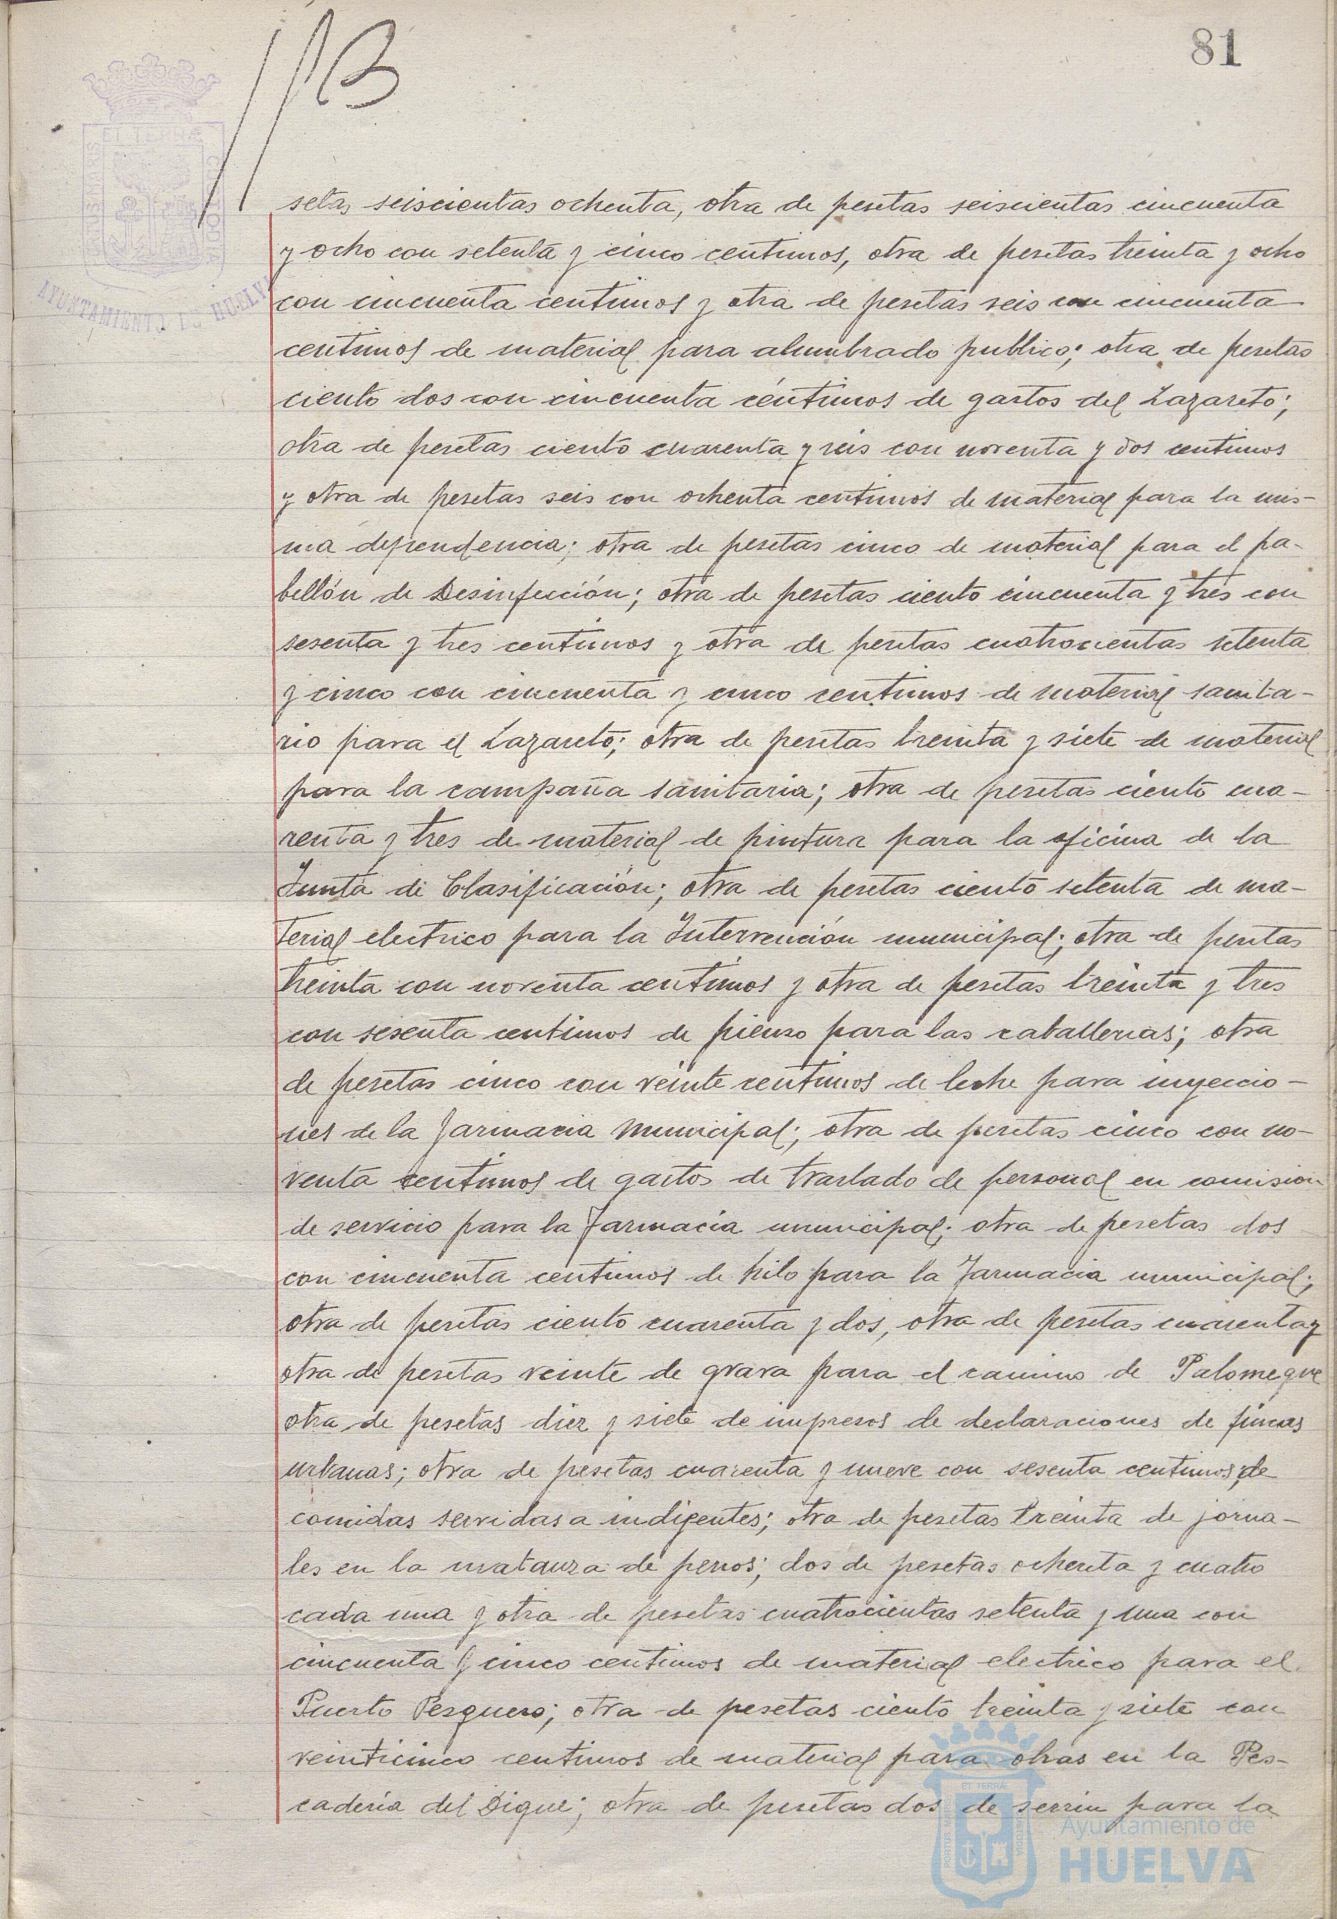 81
PORTUS MARIS ET TERRÆ CUSTODIA
AYUNTAMIENTO DE HUELVA
setas seiscientas ochenta, otra de pesetas seiscientas cincuenta
y ocho con setenta y cinco centimos, otra de pesetas treinta y ocho
con cincuenta centimos y otra de pesetas seis con cincuenta
centimos de material para alumbrado publico; otra de pesetas
ciento dos con cincuenta céntimos de gastos del Lazareto;
otra de pesetas ciento cuarenta y seis con noventa y dos centimos
y otra de pesetas seis con ochenta centimos de material para la mis-
ma dependencia; otra de pesetas cinco de material para el pa-
bellón de Desinfección; otra de pesetas ciento cincuenta y tres con
sesenta y tres centimos y otra de pesetas cuatrocientas setenta
y cinco con cincuenta y cinco centimos de material sanita-
rio para el Lazareto; otra de pesetas treinta y siete de material
para la campaña sanitaria; otra de pesetas ciento cua-
renta y tres de material de pintura para la oficina de la
Junta de Clasificación; otra de pesetas ciento setenta de ma-
terial electrico para la Intervención municipal; otra de pesetas
treinta con noventa centimos y otra de pesetas treinta y tres
con sesenta centimos de pienso para las caballerias; otra
de pesetas cinco con veinte centimos de leche para inyeccio-
nes de la Farmacia Municipal; otra de pesetas cinco con no-
venta centimos de gastos de traslado de personal en comision
de servicio para la Farmacia municipal; otra de pesetas dos
con cincuenta centimos de hilo para la Farmacia municipal;
otra de pesetas ciento cuarenta y dos, otra de pesetas cuarenta y
otra de pesetas veinte de grava para el camino de Palomeque
otra de pesetas diez y siete de impresos de declaraciones de fincas
urbanas; otra de pesetas cuarenta y nueve con sesenta centimos, de
comidas servidas a indigentes; otra de pesetas treinta de jorna-
les en la matanza de perros; dos de pesetas ochenta y cuatro
cada una y otra de pesetas cuatrocientas setenta y una con
cincuenta y cinco centimos de material electrico para el
Puerto Pesquero; otra de pesetas ciento treinta y siete con
veinticinco centimos de material para obras en la Pes-
cadería del Dique; otra de pesetas dos de serrin para la
Ayuntamiento de
HUELVA